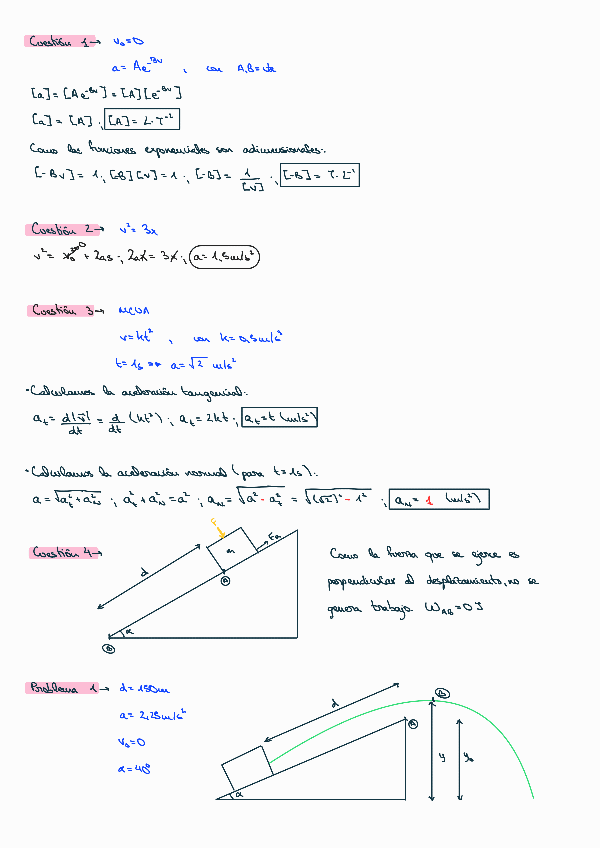 Cuestión 1 → v₀=0
a= Ae^-Bv , con A,B=ctes
[a]=[Ae^-Bv]=[A][e^-Bv]
[a]=[A] ; [A]= L·T⁻²
Como las funciones exponenciales son adimensionales:
[-Bv]= 1 ; [-B][v]=1 ; [-B]= 1/[v] ; [-B]= T·L⁻¹
Cuestión 2 → v²= 3x
v²= v₀² 0 + 2as ; 2ax= 3x ; a= 1,5m/s²
Cuestión 3 → MCUA
v=kt² , con k=0,5m/s³
t=1s ⇒ a=√2 m/s²
·Calculamos la aceleración tangencial:
aₜ= d|v⃗|/dt = d/dt (kt²) ; aₜ= 2kt ; aₜ=t (m/s²)
·Calculamos la aceleración normal (para t=1s):
a=√(aₜ²+a_N²) ; aₜ²+a_N²=a² ; a_N=√(a²-aₜ²) = √((√2)²-1²) ; a_N= 1 (m/s²)
Cuestión 4 →
F
m
d
A
α
B
Como la fuerza que se ejerce es
perpendicular al desplazamiento, no se
genera trabajo. W_AB=0J
Problema 1 → d=150m
a= 2,25m/s²
v₀=0
α=40°
d
B
A
y
y₀
α